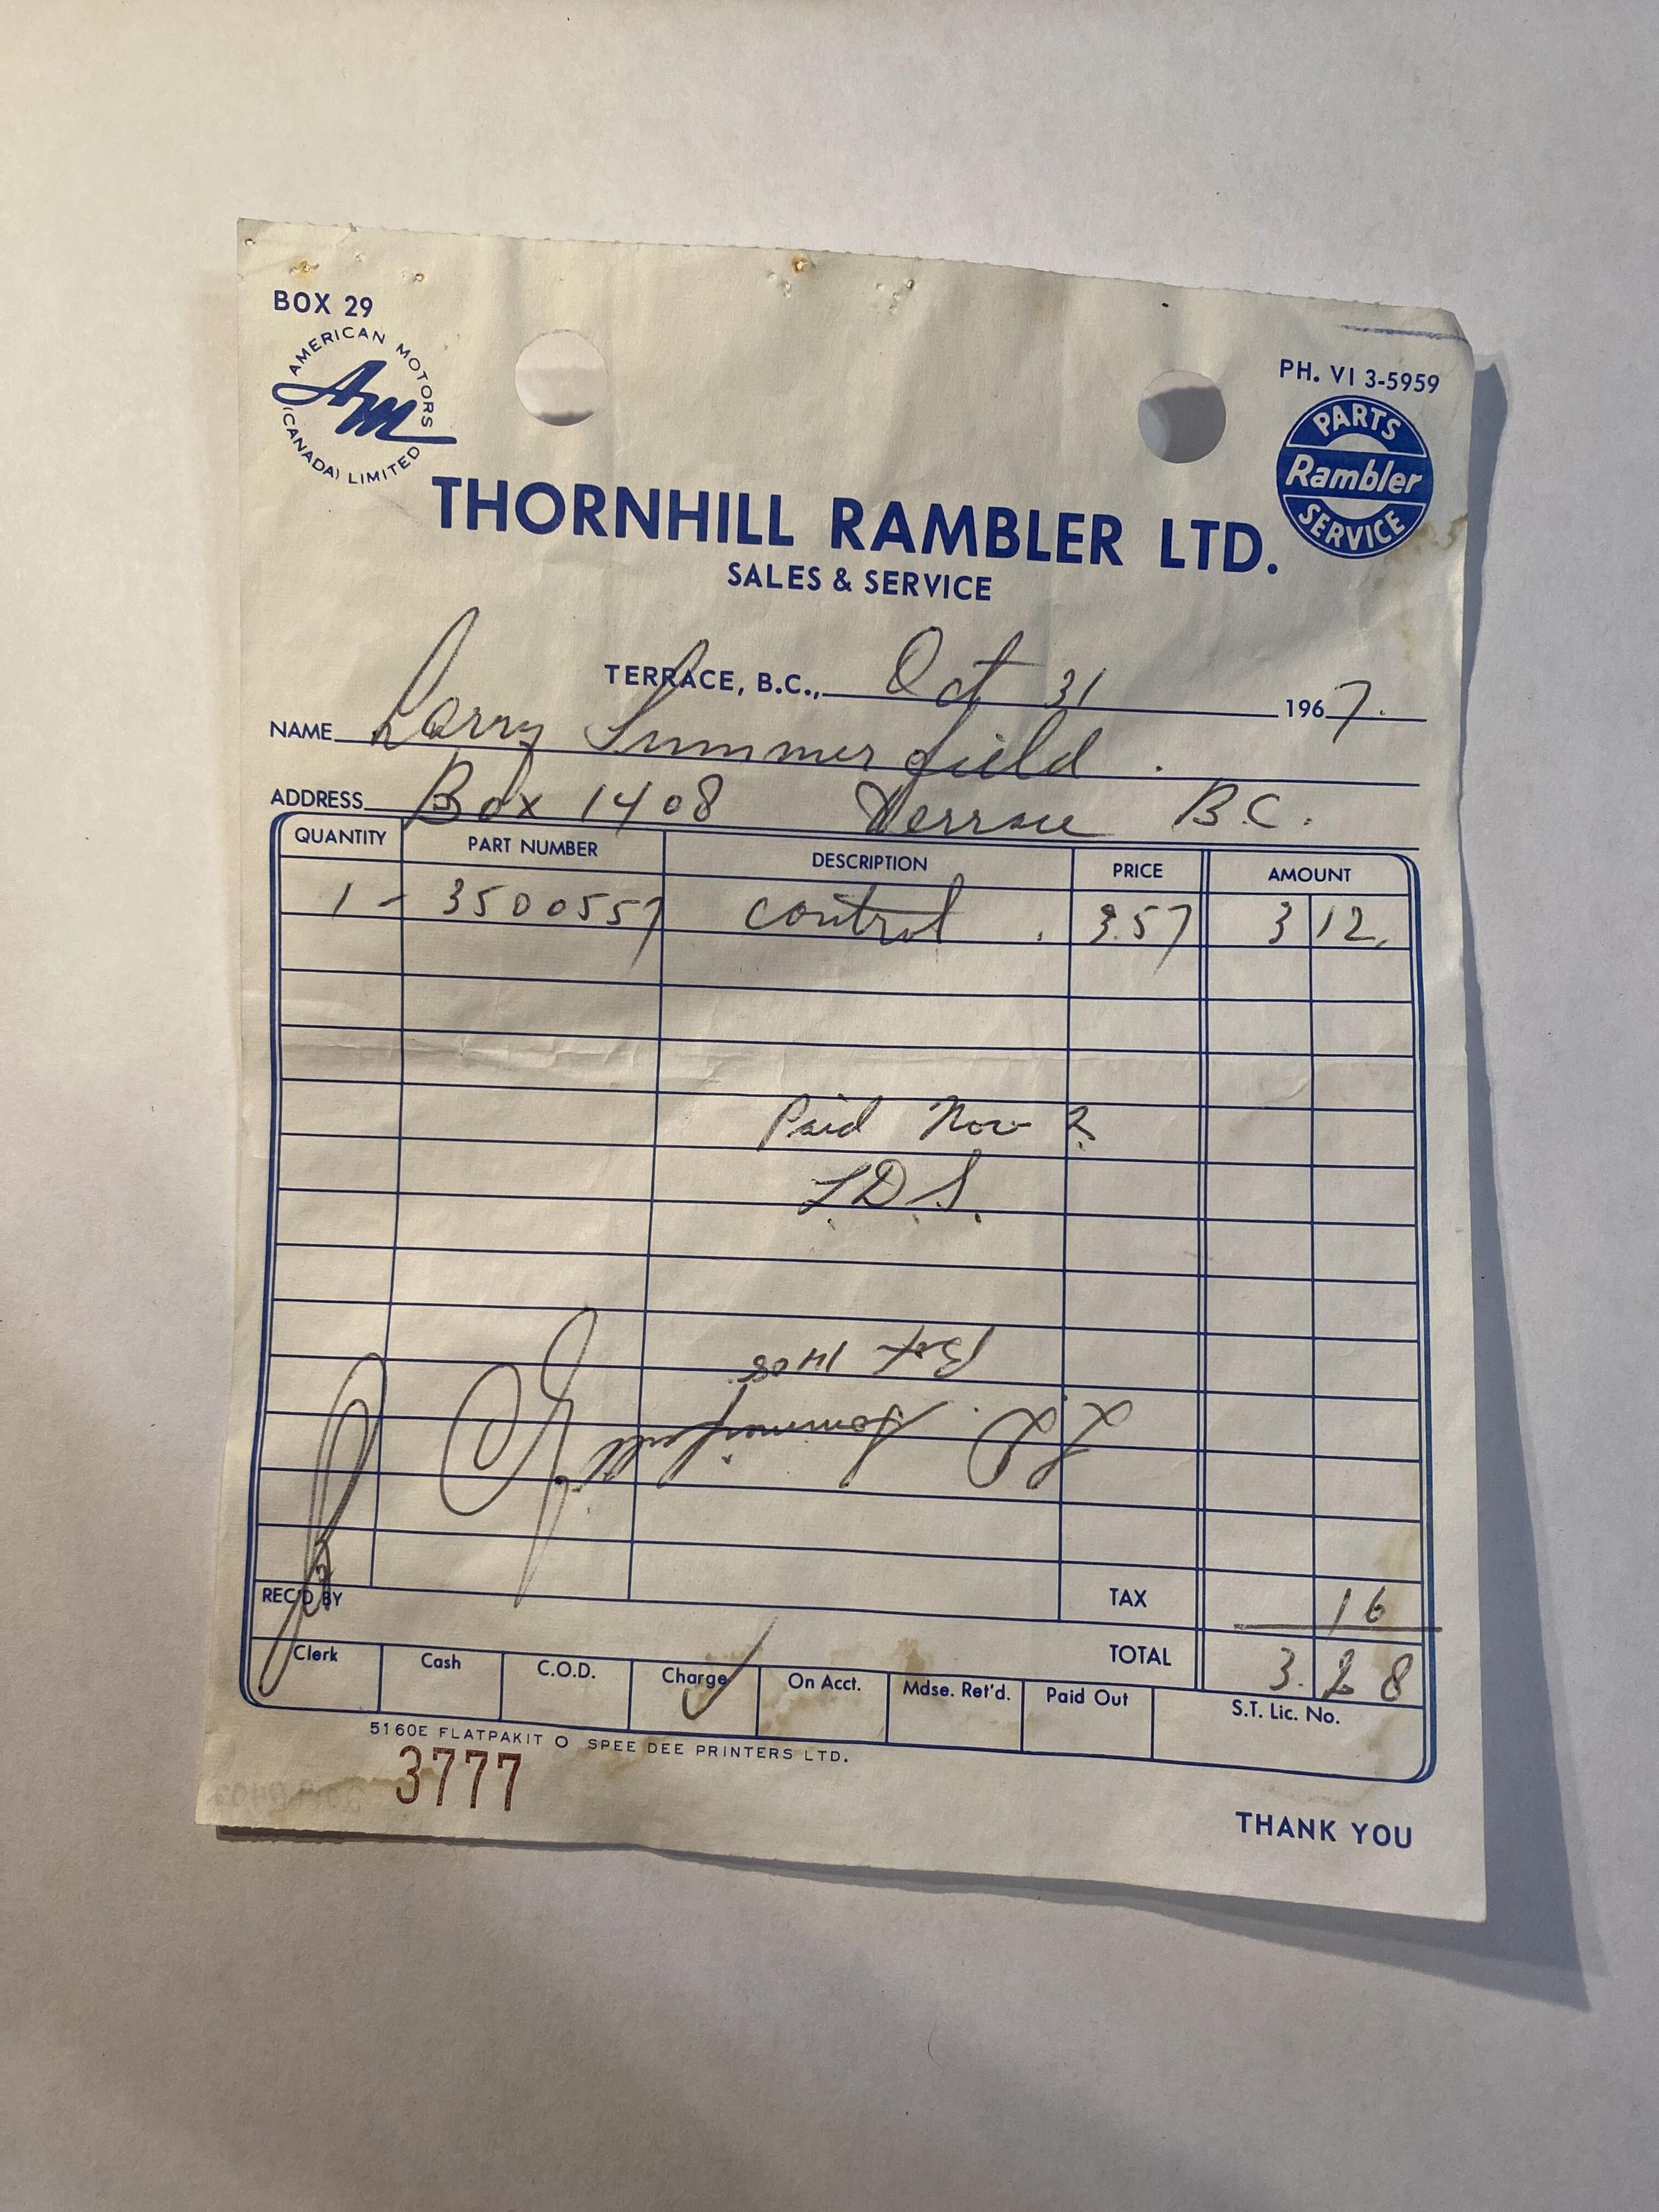 BOX 29
PH. VI 3-5959
AMERICAN MOTORS (CANADA) LIMITED
AM
PARTS
Rambler
SERVICE
THORNHILL RAMBLER LTD.
SALES & SERVICE
TERRACE, B.C., Oct 31 1967.
NAME Larry Summerfield.
ADDRESS Box 1408 Terrace B.C.
QUANTITY PART NUMBER DESCRIPTION PRICE AMOUNT
1 - 3500557 control. 3.57 3 12.
Paid Nov 2
L.D.S.
L.D. Sommerfield
Box 1408
TAX 16
REC'D BY
TOTAL 3.28
Clerk Cash C.O.D. Charge ✓ On Acct. Mdse. Ret'd. Paid Out S.T. Lic. No.
5160E FLATPAKIT O SPEE DEE PRINTERS LTD.
3777
THANK YOU